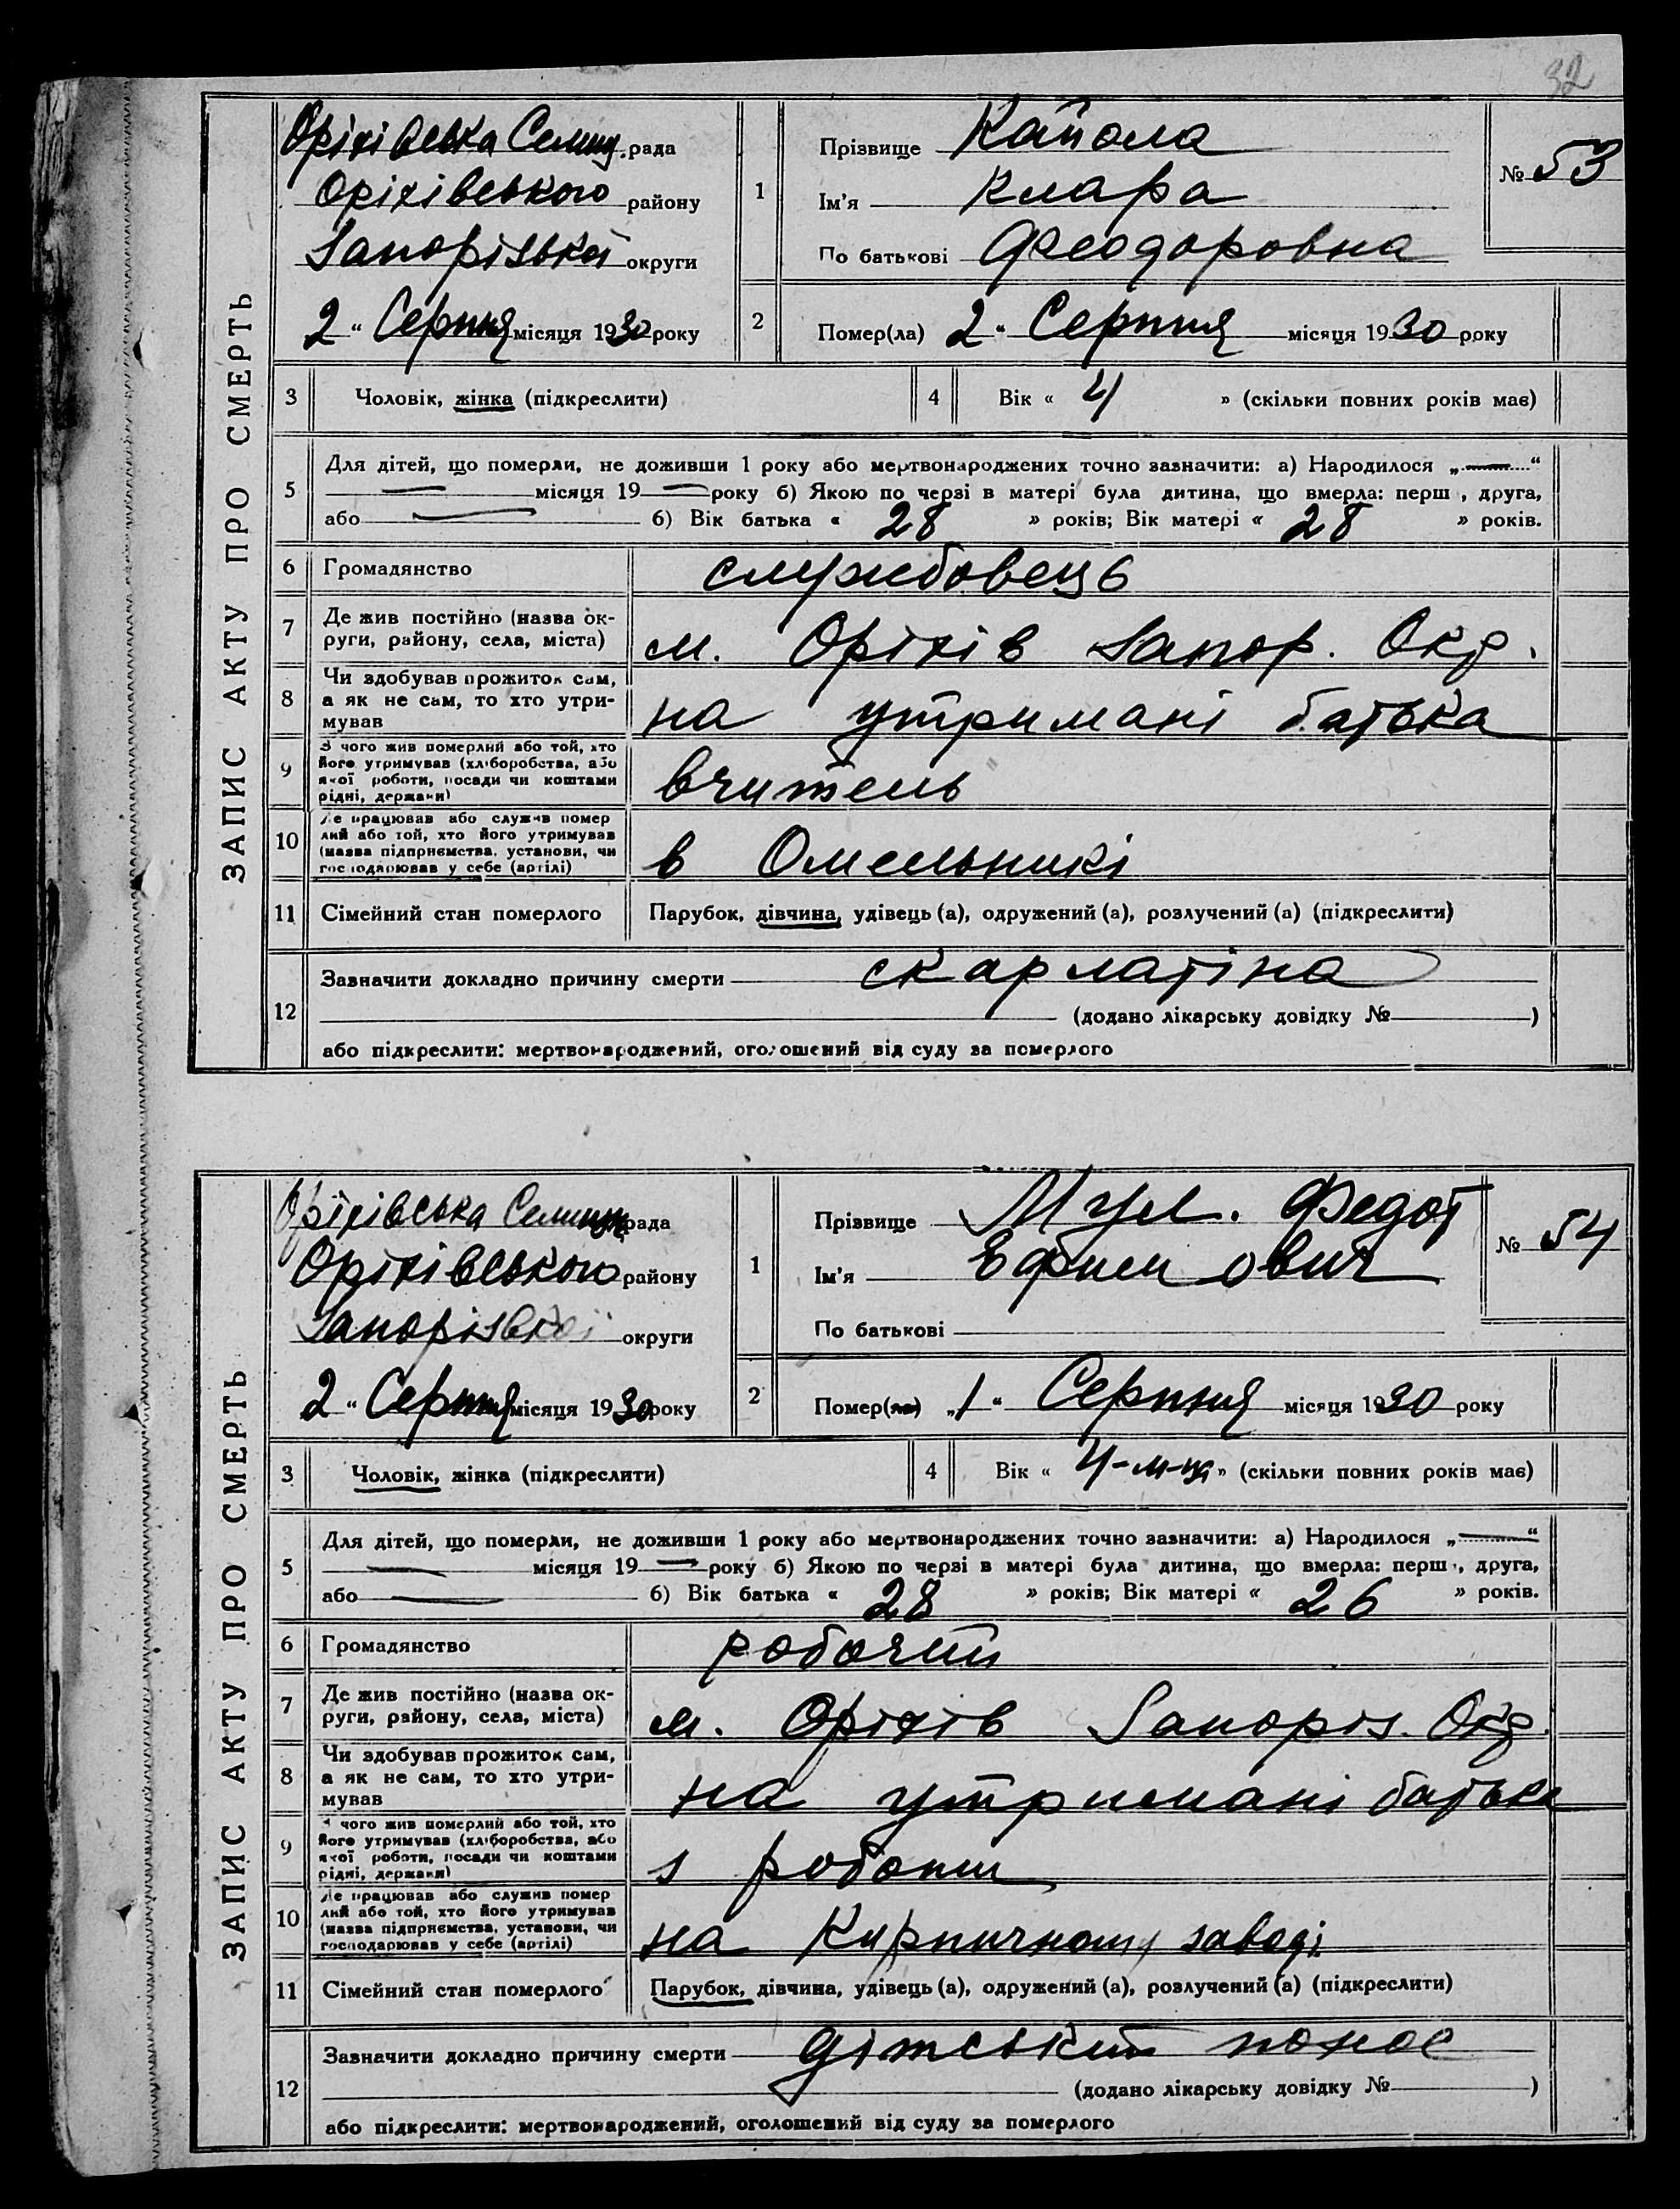 32
ЗАПИС АКТУ ПРО СМЕРТЬ
Оріхівська Селищ. рада
Оріхівського району
Запорізької округи
2 " Серпня місяця 1930 року
1
Прізвище Кайола
Ім'я Клара
По батькові Феодоровна
№ 53
2
Помер(ла) 2 " Серпня місяця 1930 року
3 Чоловік, жінка (підкреслити)
4 Вік « 4 » (скільки повних років має)
5
Для дітей, що померли, не доживши 1 року або мертвонароджених точно зазначити: а) Народилося „—“
— місяця 19 — року б) Якою по черзі в матері була дитина, що вмерла: перш , друга,
або — б) Вік батька « 28 » років; Вік матері « 28 » років.
6 Громадянство службовець
7 Де жив постійно (назва ок-
руги, району, села, міста) м. Оріхів Запор. Окр.
8 Чи здобував прожиток сам,
а як не сам, то хто утри-
мував на утримані батька
9 З чого жив померлий або той, хто
його утримував (хліборобства, або
якої роботи, посади чи коштами
рідні, держави) вчитель
10 Де працював або служив помер
лий або той, хто його утримував
(назва підприємства, установи, чи
господарював у себе (артілі) в Омельникі
11 Сімейний стан померлого Парубок, дівчина, удівець (а), одружений (а), розлучений (а) (підкреслити)
12
Зазначити докладно причину смерти скарлатіна
(додано лікарську довідку № )
або підкреслити: мертвонароджений, оголошений від суду за померлого
ЗАПИС АКТУ ПРО СМЕРТЬ
Оріхівська Селищ рада
Оріхівського району
Запорізької округи
2 " Серпня місяця 1930 року
1
Прізвище Мул. Федот
Ім'я Ефимович
По батькові
№ 54
2
Помер(ла) „1 " Серпня місяця 1930 року
3 Чоловік, жінка (підкреслити)
4 Вік « 4-м-ця » (скільки повних років має)
5
Для дітей, що померли, не доживши 1 року або мертвонароджених точно зазначити: а) Народилося „—“
— місяця 19 — року б) Якою по черзі в матері була дитина, що вмерла: перш , друга,
або — б) Вік батька « 28 » років; Вік матері « 26 » років.
6 Громадянство робочий
7 Де жив постійно (назва ок-
руги, району, села, міста) м. Оріхів Запоріз. Окр.
8 Чи здобував прожиток сам,
а як не сам, то хто утри-
мував на утримані батька
9 З чого жив померлий або той, хто
його утримував (хліборобства, або
якої роботи, посади чи коштами
рідні, держави) з роботи
10 Де працював або служив помер
лий або той, хто його утримував
(назва підприємства, установи, чи
господарював у себе (артілі) на Кирпичному заводі
11 Сімейний стан померлого Парубок, дівчина, удівець (а), одружений (а), розлучений (а) (підкреслити)
12
Зазначити докладно причину смерти дітський понос
(додано лікарську довідку № )
або підкреслити: мертвонароджений, оголошений від суду за померлого